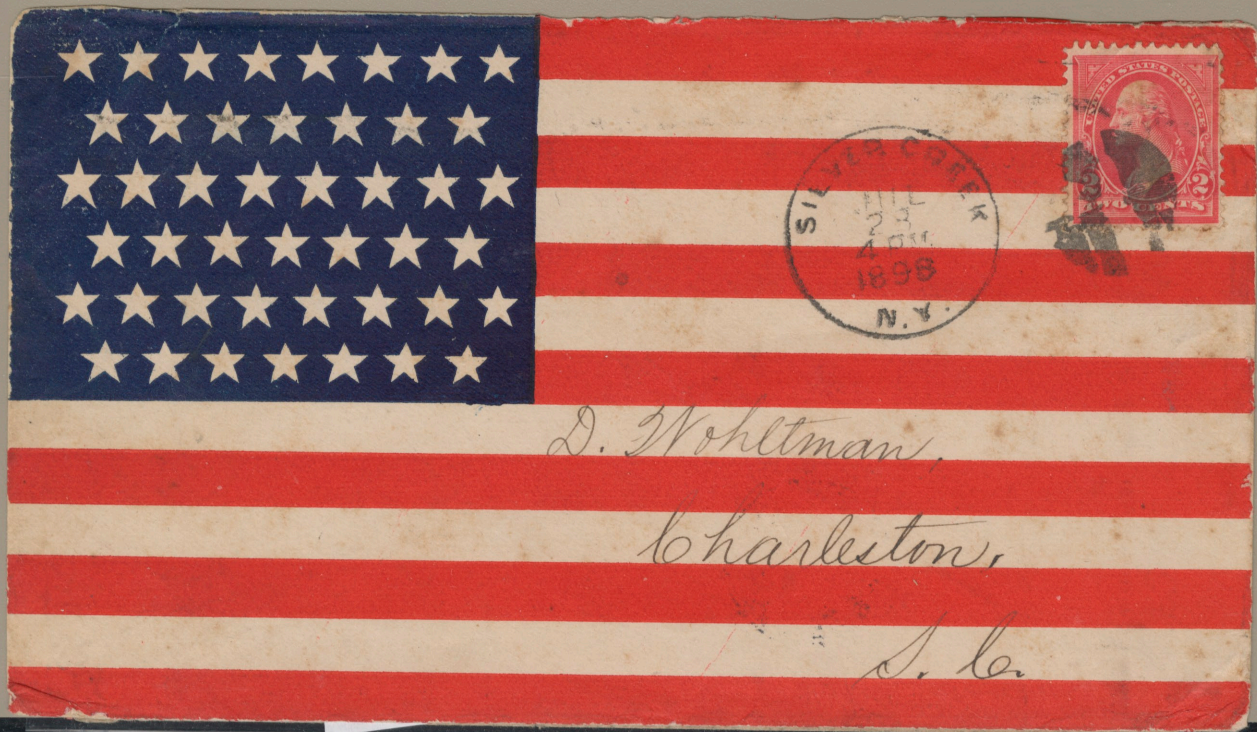 UNITED STATES POSTAGE
2 2
TWO CENTS
SILVER CREEK
28
4 PM
1898
N.Y.
D. Wohltman,
Charleston,
S. C.